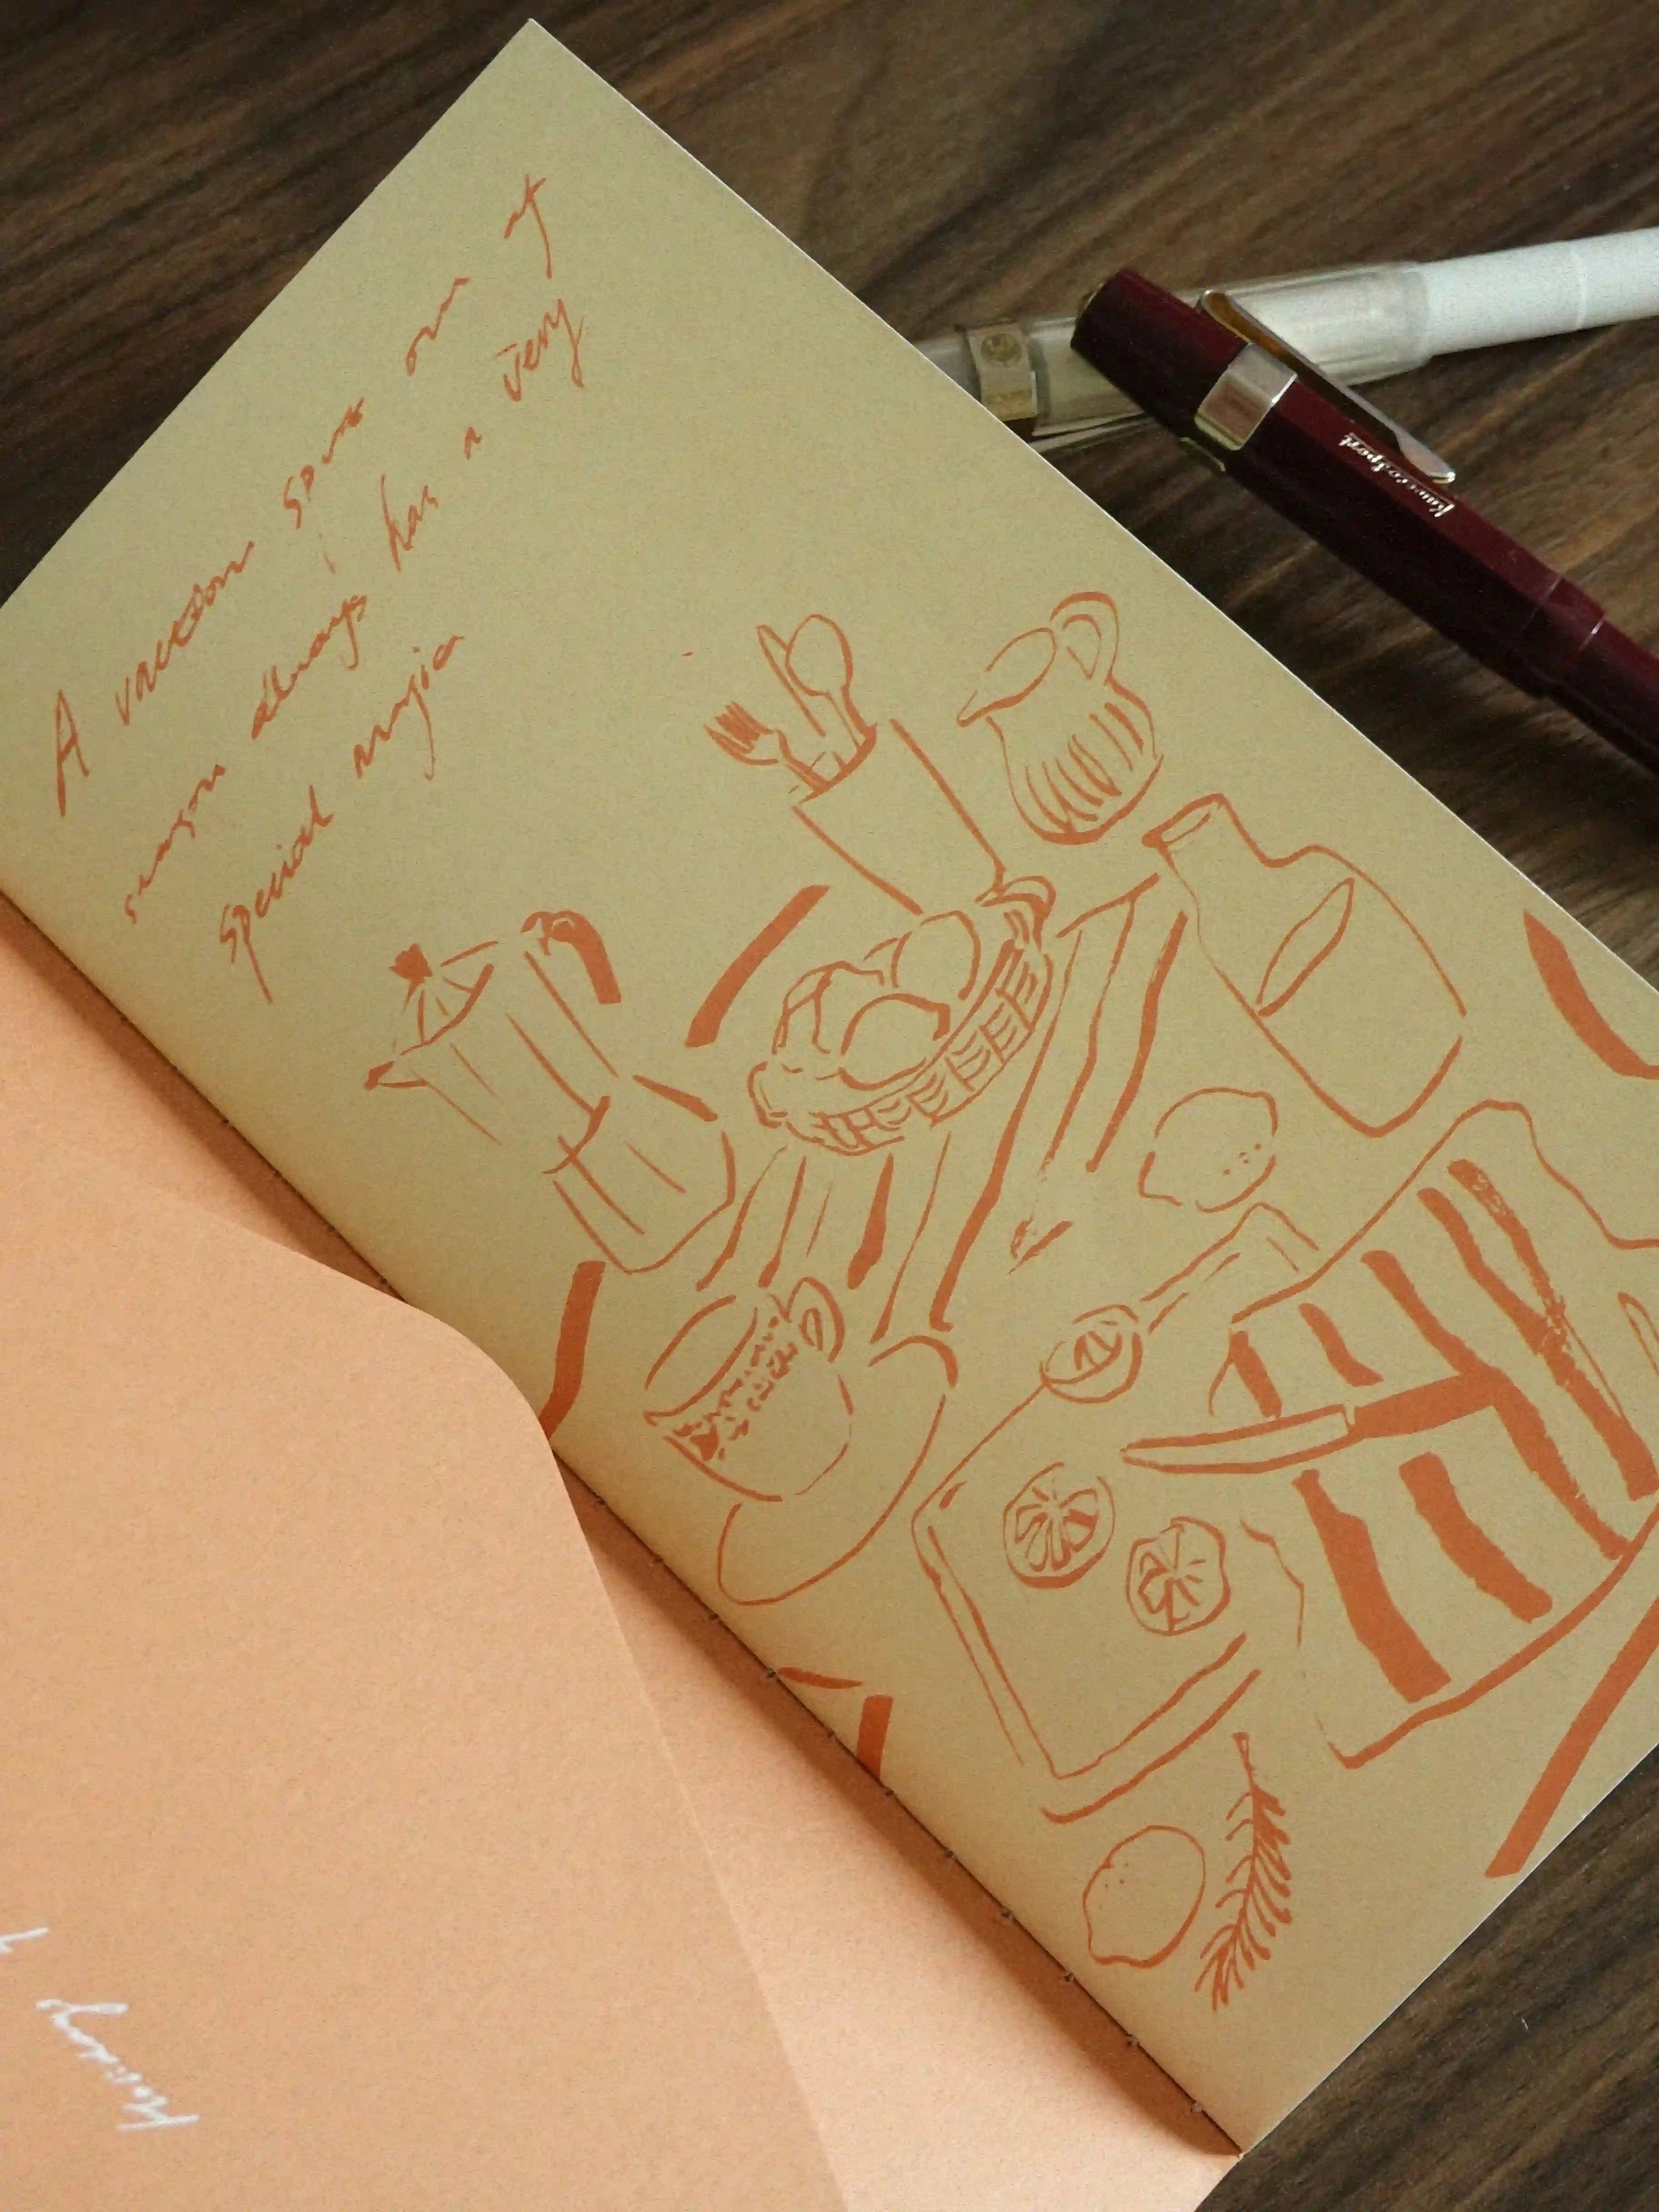 A vacation spent out of
season always has a very
special magic
Kaweco Sport
Always